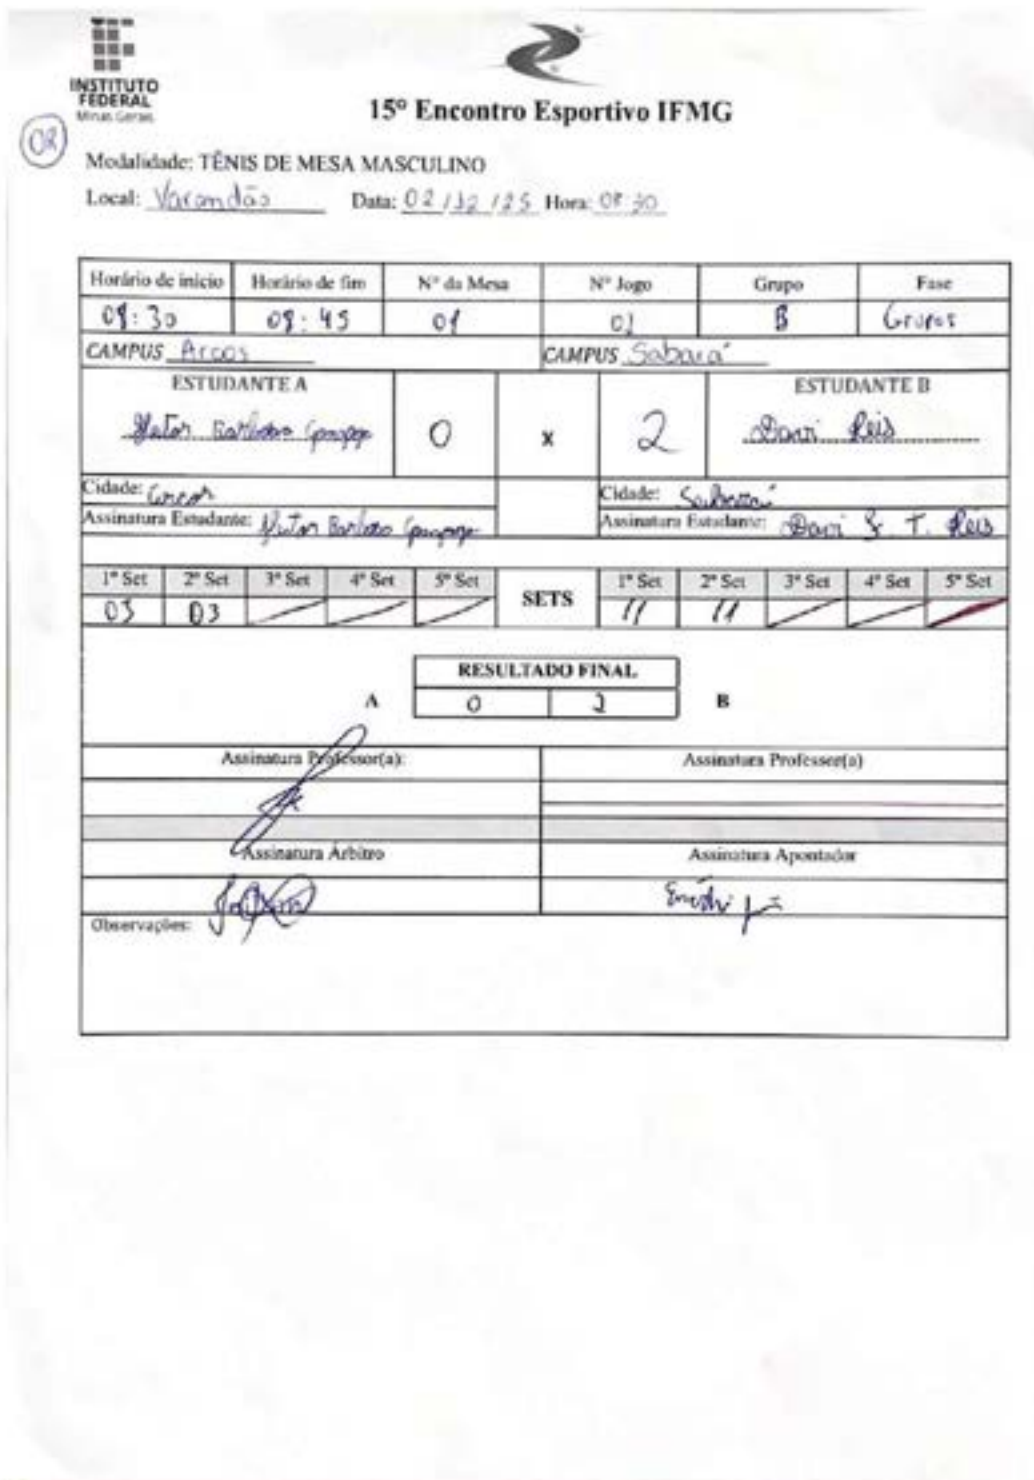 INSTITUTO
FEDERAL
Minas Gerais
15º Encontro Esportivo IFMG
08
Modalidade: TÊNIS DE MESA MASCULINO
Local: Varandão Data: 02/12/25 Hora: 08:30
Horário de início Horário de fim Nº da Mesa Nº Jogo Grupo Fase
08:30 08:45 01 01 B Grupos
CAMPUS Arcos CAMPUS Sabará
ESTUDANTE A ESTUDANTE B
Barbosa 0 x 2 Davi Reis
Cidade: Arcos Cidade: Sabará
Assinatura Estudante: Barbosa Assinatura Estudante: Davi T. Reis
1º Set 2º Set 3º Set 4º Set 5º Set SETS 1º Set 2º Set 3º Set 4º Set 5º Set
03 03 11 11
RESULTADO FINAL
A 0 2 B
Assinatura Professor(a): Assinatura Professor(a)
Assinatura Árbitro Assinatura Apontador
Observações: